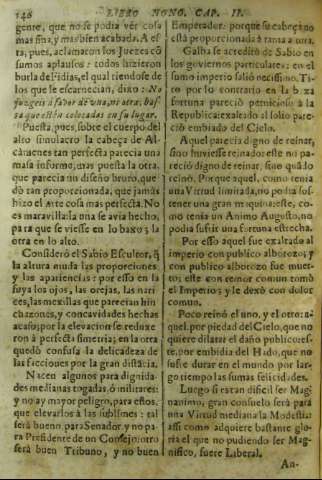 146 LIBRO NONO, CAP. II.
gente, que no se podia ver cosa
mas fina, y mas bien acabada. A ef
ta, pues, aclamaron los Juezes cō
sumos aplausos: todos hizieron
burla de Fidias, el qual riendose de
los que le escarnecian, dixo: No
juzgueis à favor de una, ni otra, has
ta que estèn colocadas en su lugar.
Puesta, pues, sobre el cuerpo del
alto simulacro la cabeça de Al-
càmenes tan perfecta parecia una
masa informe; mas puesta la otra,
que parecia un diseño bruto, que
dò tan proporcionada, que jamàs
hizo el Arte cosa mas perfecta. No
es maravilla: la una se avia hecho,
para que se viesse en lo baxo; la
otra en lo alto.
Considerò el Sabio Escultor, q̃
la altura muda las proporciones
y las apariencias: por esso en la
suya los ojos, las orejas, las nari-
ces, las mexillas que parecian hin
chazones, y concavidades hechas
acaso; por la elevacion se reduxe
ron à perfecta simetria; en la otra
quedò confusa la delicadeza de
las facciones por la gran distācia.
Nacen algunos para dignida-
des medianas togadas, ò militares:
y no ay mayor peligro, para estos,
que elevarlos à las sublimes: tal
serà bueno, para Senador, y no pa-
ra Presidente de un Consejo; otro
serà buen Tribuno, y no buen
Emperador: porque su cabeça no
està proporcionada à tanta altura.
Galba se acreditò de Sabio en
los goviernos particulares: en el
sumo imperio saliò necissimo. Ti-
to por lo contrario en la baxa
fortuna pareciò pernicioso à la
Republica: exaltado al solio pare-
ciò embiado del Cielo.
Aquel parecia digno de reinar,
sino huviesse reinado: este no pa-
reciò digno de reinar, sino quādo
reinò. Porque aquel, como tenia
una Virtud limitada, no podia sos-
tener una gran maquina: este, co-
mo tenia un Animo Augusto, no
podia sufrir una fortuna estrecha.
Por esso aquel fue exaltado al
imperio con publico alborozo; y
con publico alborozo fue muer-
to: este con temor comun tomò
el Imperio; y le dexò con dolor
comun.
Poco reinò el uno, y el otro: a-
quel, por piedad del Cielo, que no
quiere dilatar el daño publico: es-
te, por embidia del Hado, que no
sufre durar en el mundo por lar-
go tiempo las sumas felicidades.
Luego si es tan dificil ser Mag-
nanimo, gran consuelo serà para
una Virtud mediana la Modestia:
assi como adquiere bastante glo-
ria el que no pudiendo ser Mag-
nifico, fuere Liberal.
An-